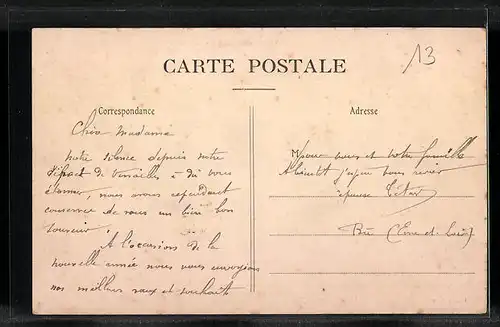 13
CARTE POSTALE
Correspondance
Adresse
Chère Madame
notre silence depuis notre
départ de Versailles a dû vous
étonner, nous avons cependant
conservé de vous un bien bon
souvenir.
A l'occasion de la
nouvelle année nous vous envoyons
nos meilleurs vœux et souhaits
M pour vous et votre famille
A bientôt j'espère vous revoir
épouse
Bû (Eure-et-Loir)